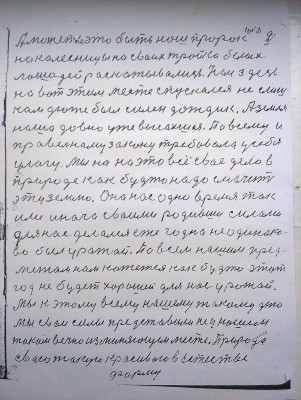 А может это быть наш пророк Илья
на колеснице на своих тройка белых
лошадей раскатывался. Нам здесь
на вот этим месте спускался не слиш
ком дюже был силен дождик. А земля
наша давно уже высохшая. По всему и
правельному закону требовала у себя
улагу. Мы на на это всё своё дело в
природе как будто надо смочить
эту землю. Она нас одно время так
или иначе своими родивши силами
для нас делался еже года не одинако-
во был урожай. По всем нашим пред-
метам нам кажется как будто этот
год не будет хороший для нас урожай.
Мы к этому всему нашему такому делу
мы свои силы представили не у нашем
таком вечно изменяющем месте. Природа
свою такую красивую в естестве
форму